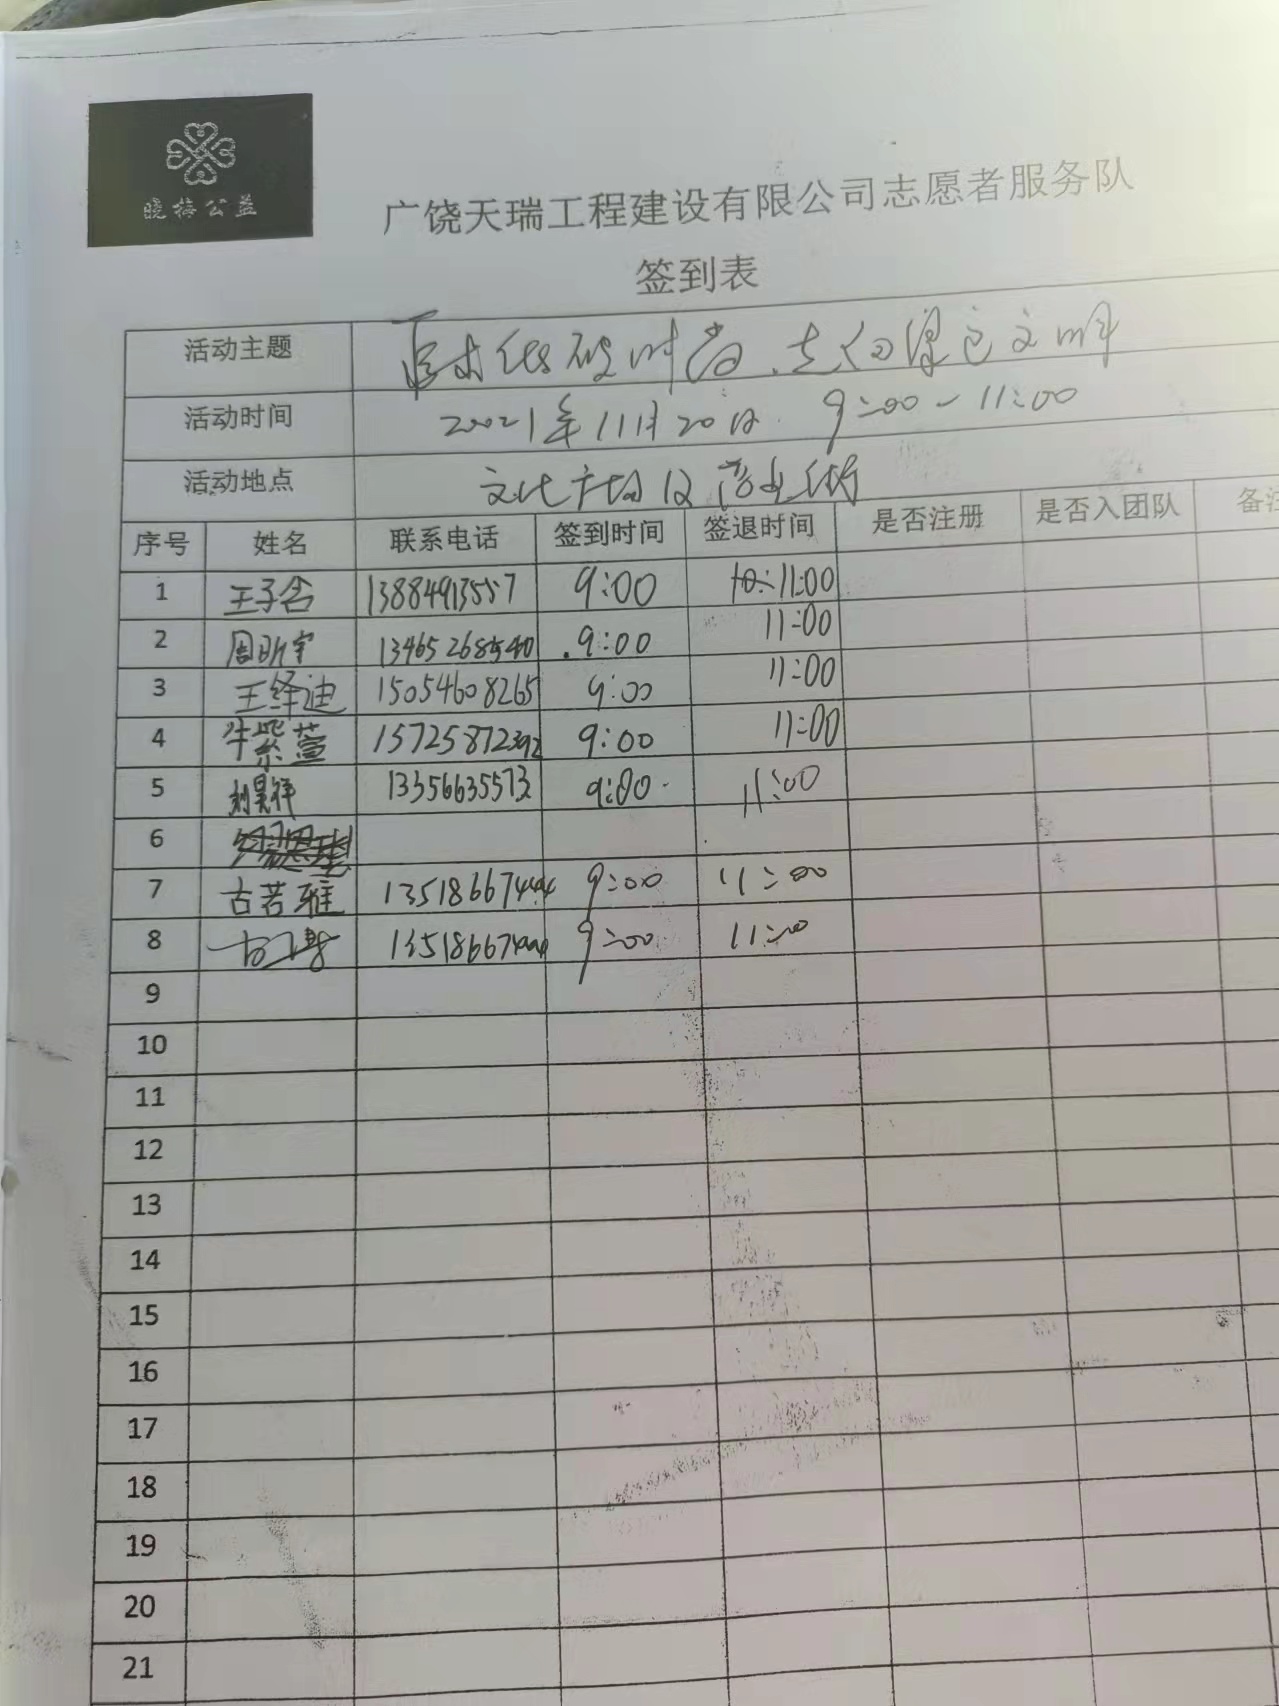 晓梅公益
广饶天瑞工程建设有限公司志愿者服务队
签到表
活动主题
活动时间 2021年11月20日 9:00-11:00
活动地点 文化广场及商业街
序号 姓名 联系电话 签到时间 签退时间 是否注册 是否入团队 备注
1 王子含 9:00 11:00
2 周昕宇 9:00 11:00
3 王绎迪 15054608265 9:00 11:00
4 牛紫萱 9:00 11:00
5 刘昊祥 13356635573 9:00 11:00
6
7 古若雅 9:00 11:00
8 9:00 11:00
9
10
11
12
13
14
15
16
17
18
19
20
21